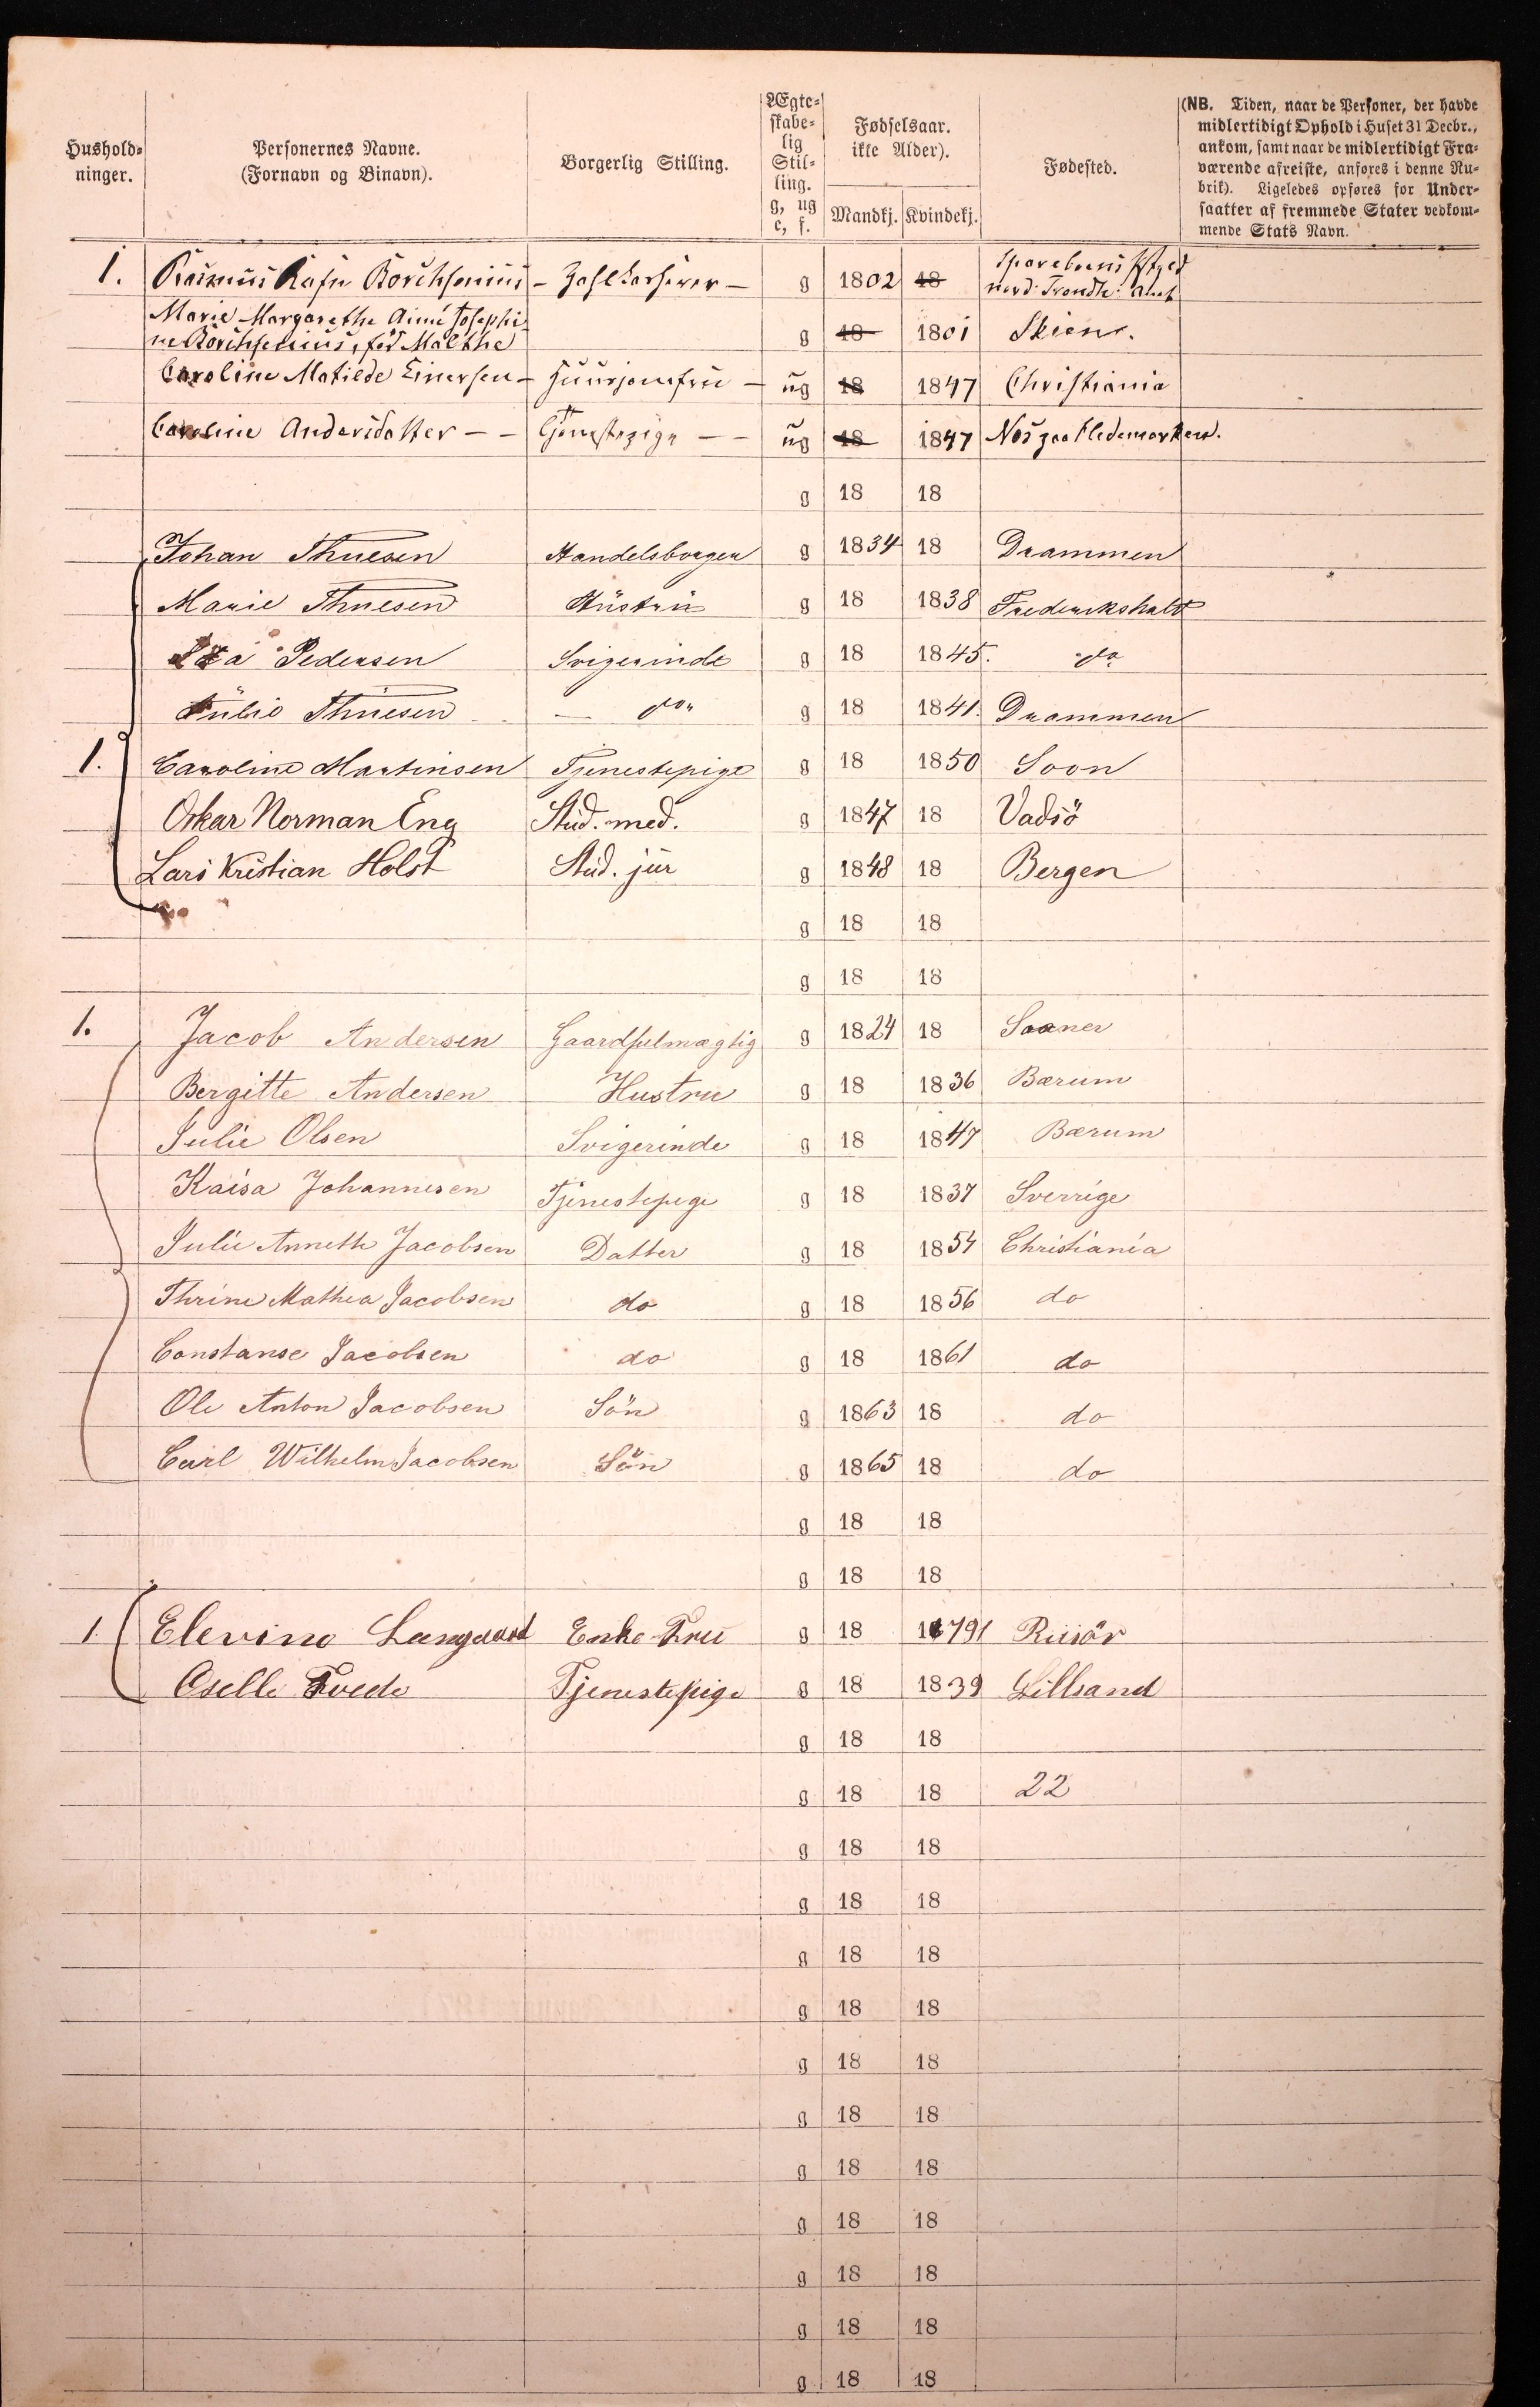 Hushold-
ninger.
Personernes Navne.
(Fornavn og Binavn).
Borgerlig Stilling.
Ægte-
skabe-
lig
Stil-
ling.
g, ug
e, f.
Fødselsaar.
ikke Alder).
Mandkj. Kvindekj.
Fødested.
(NB. Tiden, naar de Personer, der havde
midlertidigt Ophold i Huset 31 Decbr.,
ankom, samt naar de midlertidigt Fra-
værende afreiste, anføres i denne Ru-
brik). Ligeledes opføres for Under-
saatter af fremmede Stater vedkom-
mende Stats Navn.
1. Rasmus Rafn Borchsenius - Zahlkasserer - g 1802 18 Sparebuens Pstgd
nord: Trondh: Amt
Marie Margarethe Aimé Josephi-
ne Borchsenius, fød Malthe g 18 1801 Skien.
Caroline Matilde Einersen - Huusjomfru - ug 18 1847 Christiania
Caroline Andersdatter - - Tjenestepige - - ug 18 1847 Næs paa Hedemarken.
g 18 18
Johan Thuesen Handelsborger g 1834 18 Drammen
Marie Thuesen Hustru g 18 1838 Frederikshald
Pedersen Svigerinde g 18 1845. do
Julie Thuesen - do g 18 1841. Drammen
1. Caroline Martinsen Tjenestepige g 18 1850 Soon
Oskar Norman Eng Stud. med. g 1847 18 Vadsö
Lars Kristian Holst Stud. jur g 1848 18 Bergen
g 18 18
g 18 18
1. Jacob Andersen Gaardfulmægtig g 1824 18 Saaner
Bergitte Andersen Hustru g 18 1836 Bærum
Julie Olsen Svigerinde g 18 1847 Bærum
Kaisa Johannesen Tjenestepige g 18 1837 Sverrige
Julie Annethe Jacobsen Datter g 18 1854 Christiania
Thrine Mathea Jacobsen do g 18 1856 do
Constanse Jacobsen do g 18 1861 do
Ole Anton Jacobsen Sön g 1863 18 do
Carl Wilhelm Jacobsen Sön g 1865 18 do
g 18 18
g 18 18
1 Elevine Langaard Enke Fru g 18 1791 Riisör
Oselle Tvede Tjenestepige g 18 1839 Lillsand
g 18 18
g 18 18 22
g 18 18
g 18 18
g 18 18
g 18 18
g 18 18
g 18 18
g 18 18
g 18 18
g 18 18
g 18 18
g 18 18